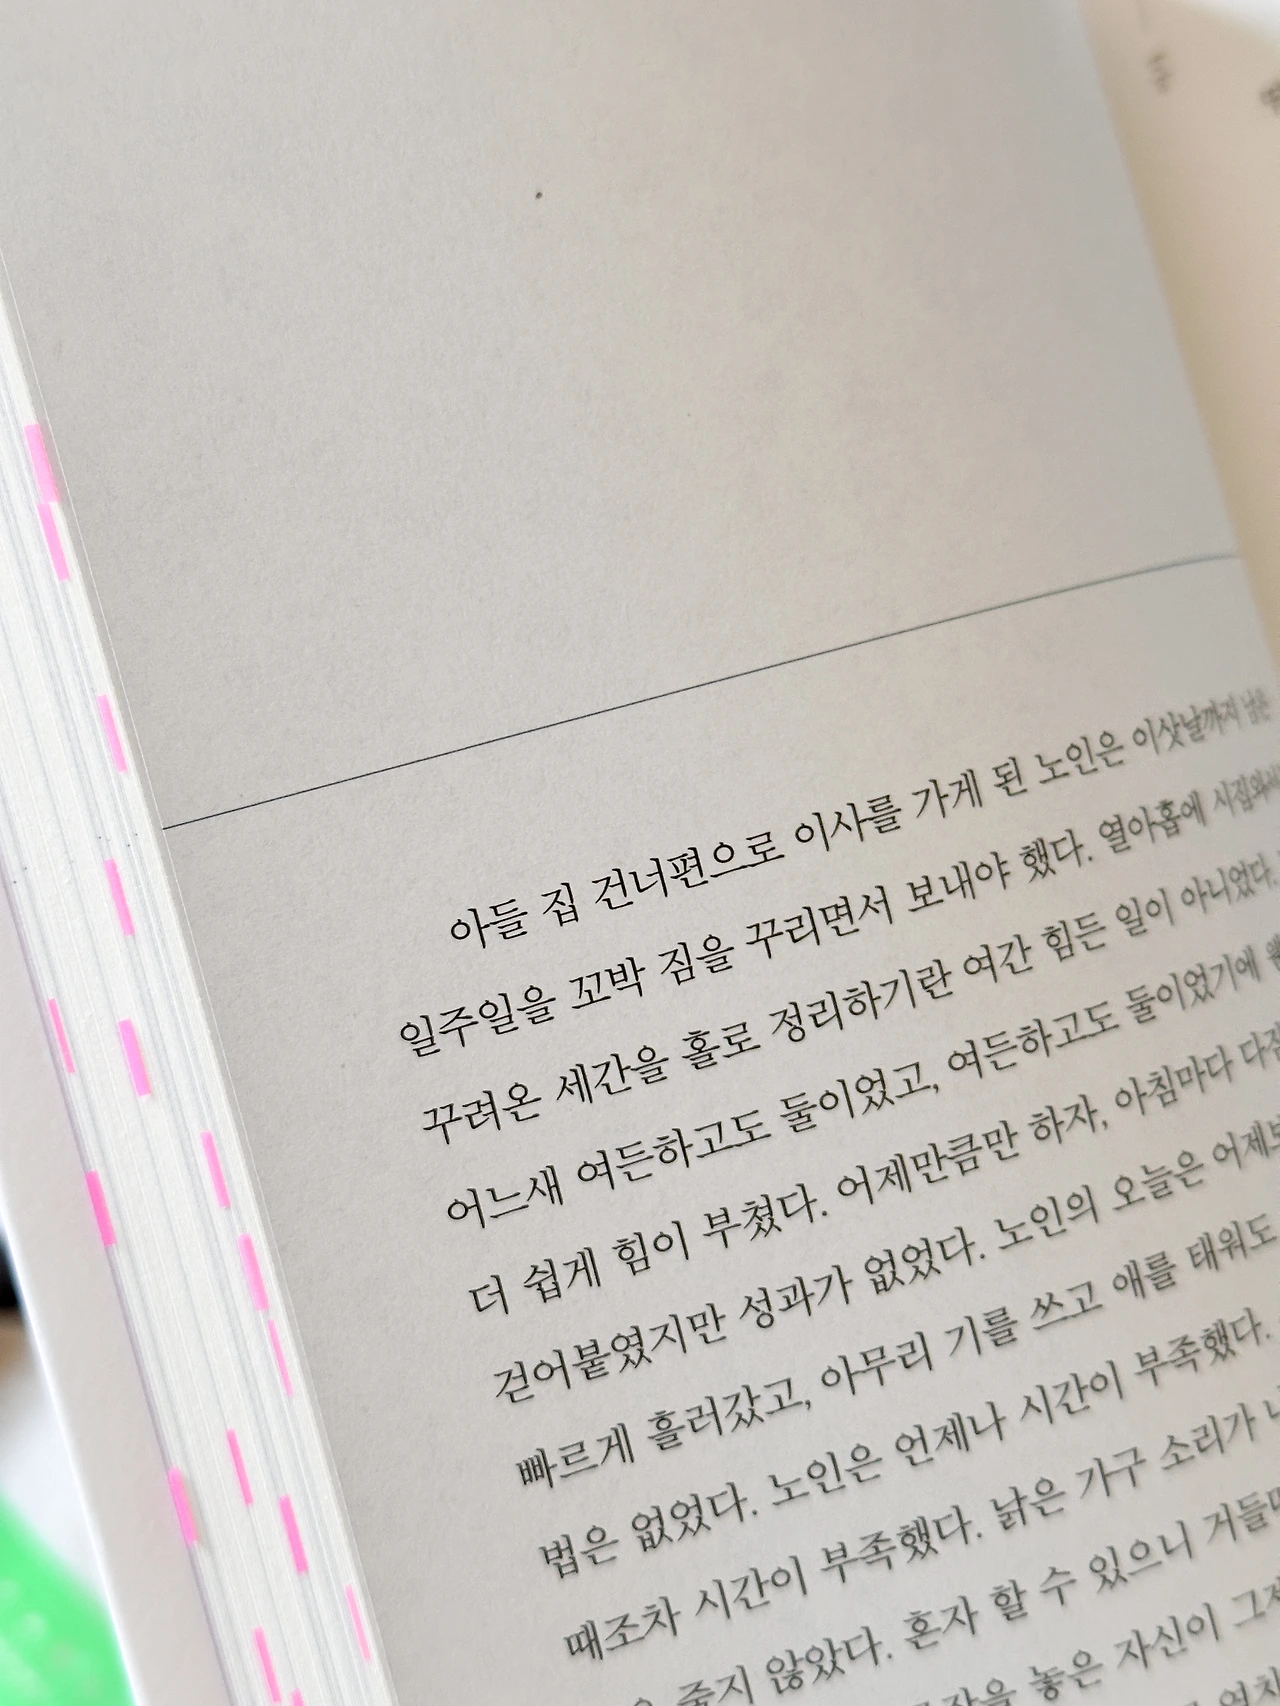 아들 집 건너편으로 이사를 가게 된 노인은 이삿날까지 남은
일주일을 꼬박 짐을 꾸리면서 보내야 했다. 열아홉에 시집와서
꾸려온 세간을 홀로 정리하기란 여간 힘든 일이 아니었다.
어느새 여든하고도 둘이었고, 여든하고도 둘이었기에
더 쉽게 힘이 부쳤다. 어제만큼만 하자, 아침마다
걷어붙였지만 성과가 없었다. 노인의 오늘은
빠르게 흘러갔고, 아무리 기를 쓰고 애를 태워도
법은 없었다. 노인은 언제나 시간이 부족했다.
때조차 시간이 부족했다. 낡은 가구 소리가
줄지 않았다. 혼자 할 수 있으니
놓은 자신이